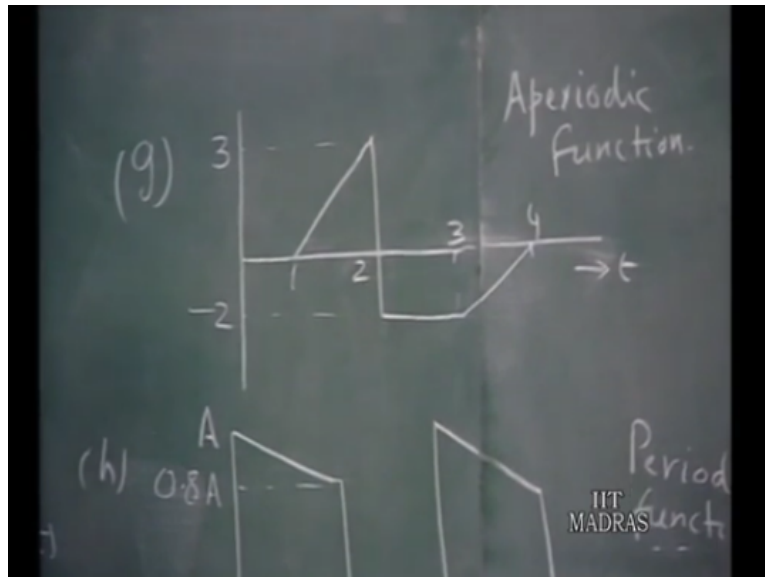 Aperiodic
function.
(g) 3
3 4
1 2
→ t
-2
A
(h) 0.8A
Period
functi
IIT
MADRAS